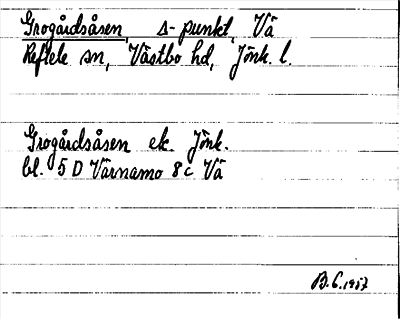 Grogårdsåsen, Δ-punkt, Vä
Reftele sn, Västbo hd, Jönk. l.
Grogårdsåsen ek. Jönk.
bl. 5 D Värnamo 8 c Vä
B.C. 1957